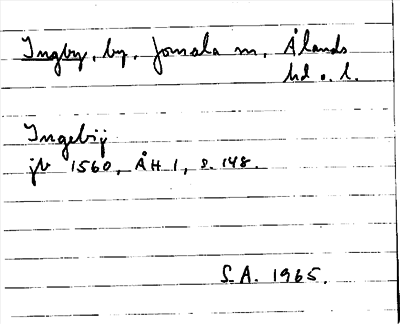 Ingby, by, Jomala sn, Ålands
hd o. l.
Ingebij
jb 1560, ÅH 1, s. 148.
S.A. 1965.